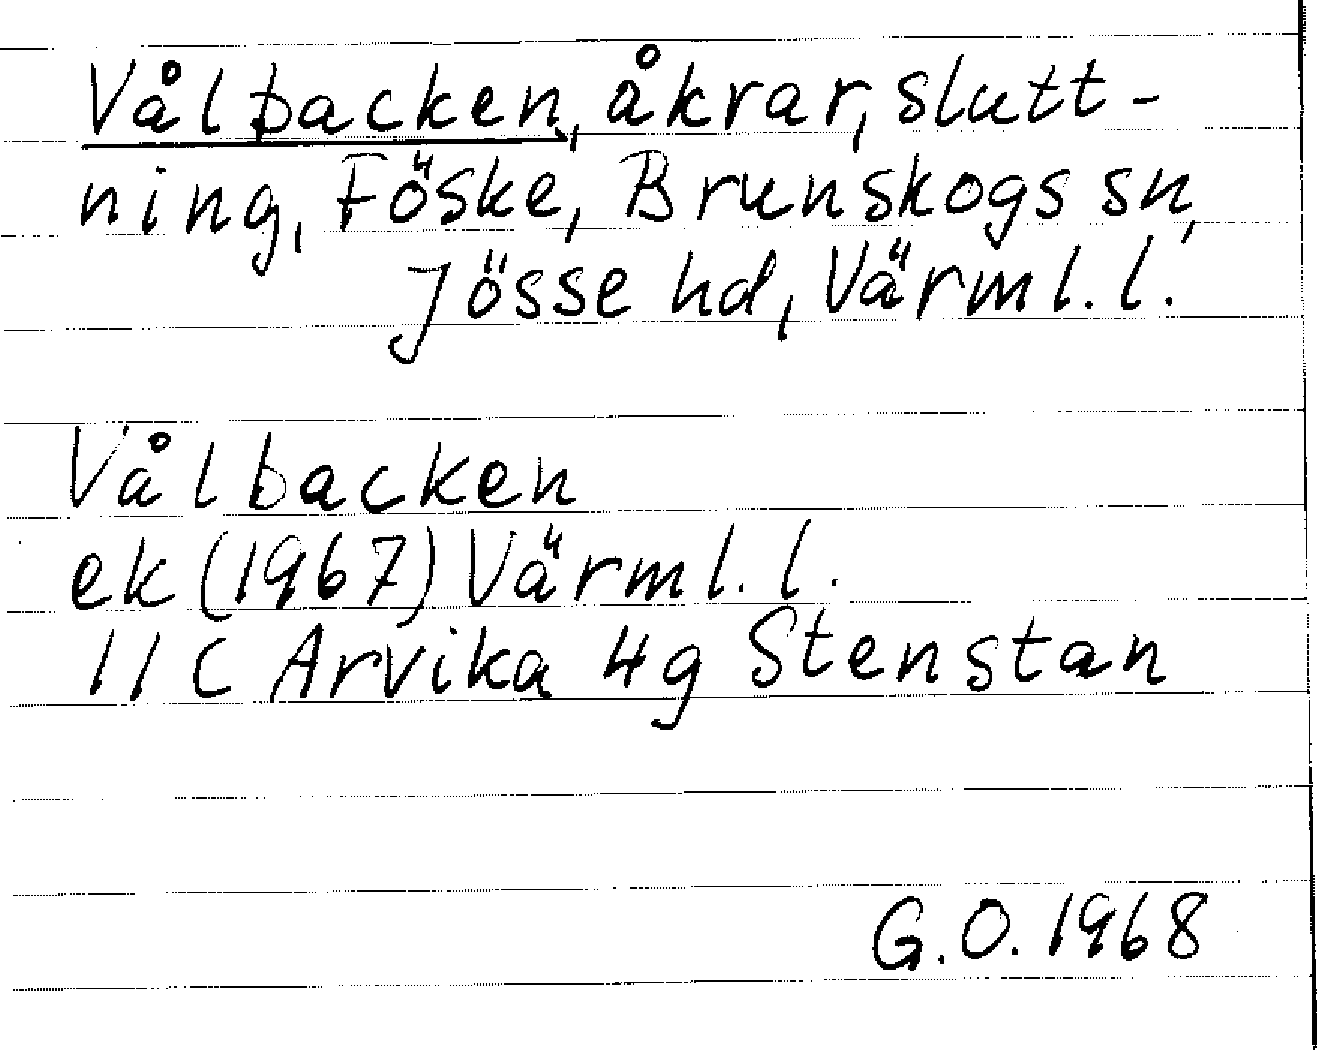 Vålbacken, åkrar, slutt-
ning, Föske, Brunskogs sn,
Jösse hd, Värml. l.
Vålbacken
ek (1967) Värml. l.
11 C Arvika 4g Stenstan
G.O. 1968